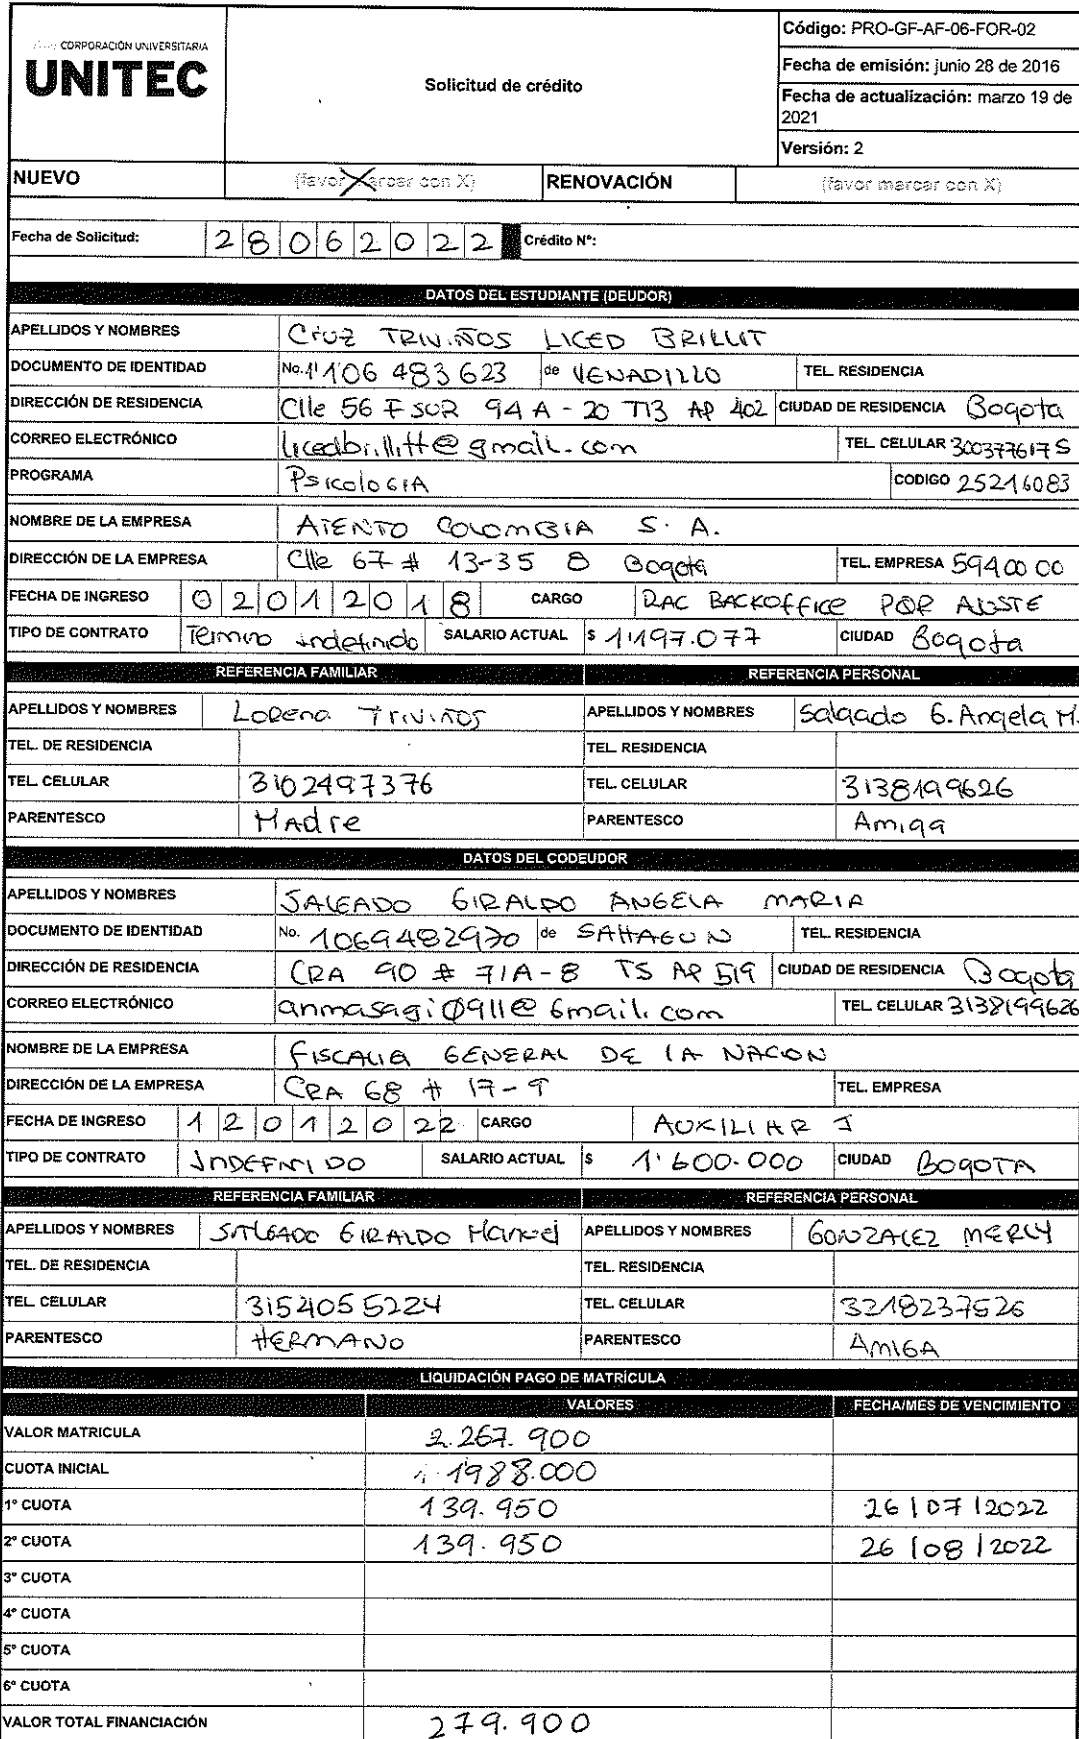 CORPORACIÓN UNIVERSITARIA
UNITEC
Solicitud de crédito
Código: PRO-GF-AF-06-FOR-02
Fecha de emisión: junio 28 de 2016
Fecha de actualización: marzo 19 de
2021
Versión: 2
NUEVO (favor marcar con X) RENOVACIÓN (favor marcar con X)
Fecha de Solicitud: 28062022 Crédito N°:
DATOS DEL ESTUDIANTE (DEUDOR)
APELLIDOS Y NOMBRES CruZ TRIVIÑOS LICED BRILLIT
DOCUMENTO DE IDENTIDAD No. 1'106 483 623 de VENADILLO TEL. RESIDENCIA
DIRECCIÓN DE RESIDENCIA Clle 56 F SUR 94 A - 20 T13 AP 402 CIUDAD DE RESIDENCIA Bogota
CORREO ELECTRÓNICO licedbrillitt@gmail.com TEL. CELULAR 3003776175
PROGRAMA PsicoloGIA CODIGO 25216083
NOMBRE DE LA EMPRESA ATENTO COLOMBIA S. A.
DIRECCIÓN DE LA EMPRESA Clle 67 # 13-35 Bogota TEL. EMPRESA 5940000
FECHA DE INGRESO 02012018 CARGO RAC BACKOFFICE PQR
TIPO DE CONTRATO Termino indefinido SALARIO ACTUAL $ 1'197.077 CIUDAD Bogota
REFERENCIA FAMILIAR REFERENCIA PERSONAL
APELLIDOS Y NOMBRES Lorena Triviños APELLIDOS Y NOMBRES Salgado G. Angela M.
TEL. DE RESIDENCIA TEL. RESIDENCIA
TEL. CELULAR 3102497376 TEL. CELULAR 3138199626
PARENTESCO MAdre PARENTESCO Amiga
DATOS DEL CODEUDOR
APELLIDOS Y NOMBRES SALGADO GIRALDO ANGELA MARIA
DOCUMENTO DE IDENTIDAD No. 1069482970 de SAHAGUN TEL. RESIDENCIA
DIRECCIÓN DE RESIDENCIA CRA 90 # 71A-8 T5 AP 519 CIUDAD DE RESIDENCIA Bogota
CORREO ELECTRÓNICO anmasagi0911@Gmail.com TEL. CELULAR 3138199626
NOMBRE DE LA EMPRESA FISCALIA GENERAL DE LA NACON
DIRECCIÓN DE LA EMPRESA CRA 68 # 17-9 TEL. EMPRESA
FECHA DE INGRESO 12012022 CARGO AUXILIAR I
TIPO DE CONTRATO INDEFINIDO SALARIO ACTUAL $ 1'600.000 CIUDAD BOGOTA
REFERENCIA FAMILIAR REFERENCIA PERSONAL
APELLIDOS Y NOMBRES SALGADO GIRALDO Manuel APELLIDOS Y NOMBRES GONZALEZ MERLY
TEL. DE RESIDENCIA TEL. RESIDENCIA
TEL. CELULAR 3154055224 TEL. CELULAR 3218237526
PARENTESCO HERMANO PARENTESCO AMIGA
LIQUIDACIÓN PAGO DE MATRÍCULA
VALORES FECHA/MES DE VENCIMIENTO
VALOR MATRICULA 2.267.900
CUOTA INICIAL 1988.000
1° CUOTA 139.950 26/07/2022
2° CUOTA 139.950 26/08/2022
3° CUOTA
4° CUOTA
5° CUOTA
6° CUOTA
VALOR TOTAL FINANCIACIÓN 279.900